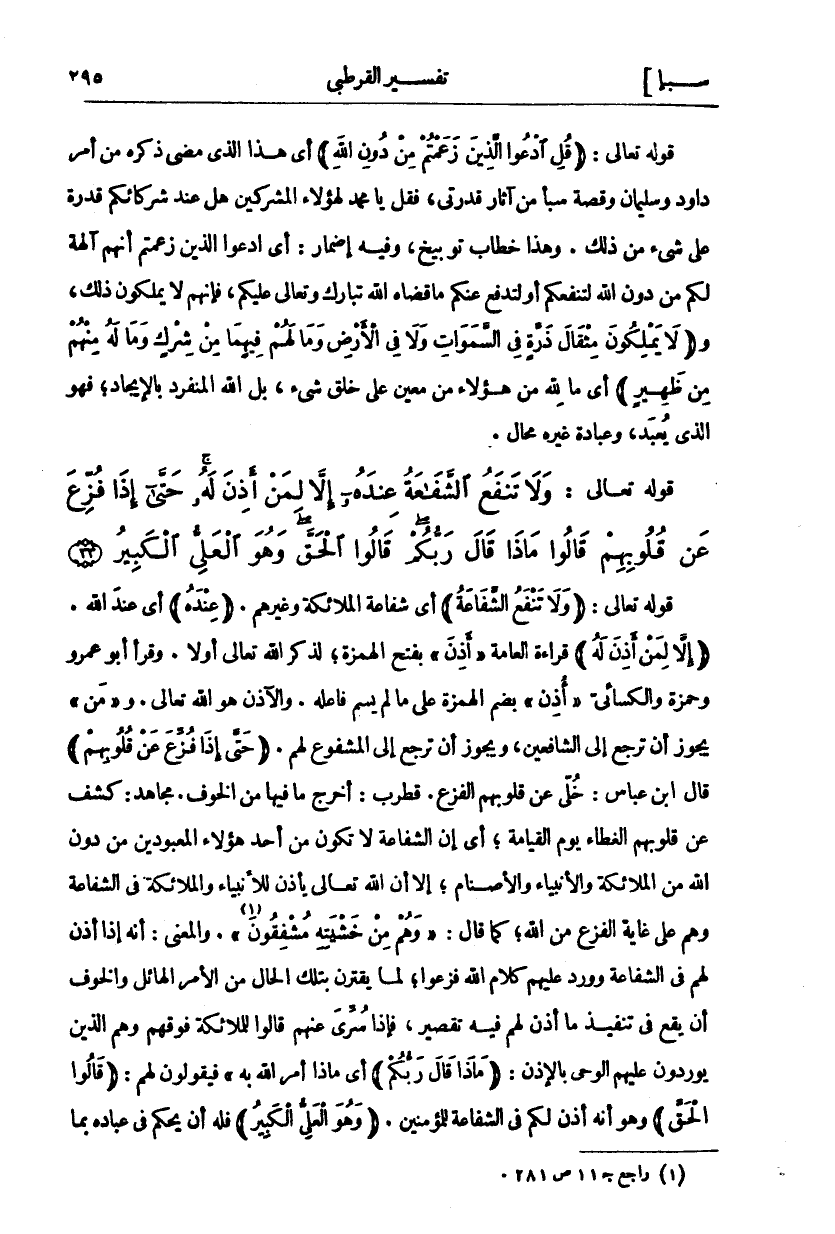 سبإ] تفسير القرطبى ٢٩٥
قوله تعالى : ﴿ قُلِ ٱدْعُوا الَّذِينَ زَعَمْتُمْ مِنْ دُونِ اللهِ ﴾ أى هذا الذى مضى ذكره من أمر
داود وسليمان وقصة سبأ من آثار قدرتى، فقل يا محمد لهؤلاء المشركين هل عند شركائكم قدرة
على شىء من ذلك . وهذا خطاب توبيخ، وفيه إضمار : أى ادعوا الذين زعمتم أنهم آلهة
لكم من دون الله لتنفعكم أو لتدفع عنكم ما قضاه الله تبارك وتعالى عليكم، فإنهم لا يملكون ذلك،
و﴿ لَا يَمْلِكُونَ مِثْقَالَ ذَرَّةٍ فِى السَّمَوَاتِ وَلَا فِى الْأَرْضِ وَمَا لَهُمْ فِيهِمَا مِنْ شِرْكٍ وَمَا لَهُ مِنْهُمْ
مِن ظَهِيرٍ ﴾ أى ما لله من هؤلاء من معين على خلق شىء ، بل الله المنفرد بالإيجاد؛ فهو
الذى يُعبَد، وعبادة غيره محال .
قوله تعالى : وَلَا تَنفَعُ ٱلشَّفَـٰعَةُ عِندَهُۥٓ إِلَّا لِمَنْ أَذِنَ لَهُۥۚ حَتَّىٰٓ إِذَا فُزِّعَ
عَن قُلُوبِهِمْ قَالُوا مَاذَا قَالَ رَبُّكُمْۖ قَالُوا ٱلْحَقَّۖ وَهُوَ ٱلْعَلِىُّ ٱلْكَبِيرُ ﴿٢٣﴾
قوله تعالى : ﴿ وَلَا تَنْفَعُ الشَّفَاعَةُ ﴾ أى شفاعة الملائكة وغيرهم . ﴿ عِنْدَهُ ﴾ أى عندَ الله .
﴿ إِلَّا لِمَنْ أَذِنَ لَهُ ﴾ قراءة العامة « أَذِنَ » بفتح الهمزة؛ لذكر الله تعالى أولا . وقرأ أبو عمرو
وحمزة والكسائى « أُذِن » بضم الهمزة على ما لم يسم فاعله . والآذن هو الله تعالى. و « مَن »
يجوز أن ترجع إلى الشافعين، ويجوز أن ترجع إلى المشفوع لهم . ﴿ حَتَّى إِذَا فُزِّعَ عَنْ قُلُوبِهِمْ ﴾
قال ابن عباس : خُلّى عن قلوبهم الفزع. قطرب : أخرج ما فيها من الخوف. مجاهد: كشف
عن قلوبهم الغطاء يوم القيامة ؛ أى إن الشفاعة لا تكون من أحد هؤلاء المعبودين من دون
الله من الملائكة والأنبياء والأصنام ؛ إلا أن الله تعالى يأذن للأنبياء والملائكة فى الشفاعة
وهم على غاية الفزع من الله؛ كما قال : « وَهُمْ مِنْ خَشْيَتِهِ مُشْفِقُونَ(١) » . والمعنى : أنه إذا أذن
لهم فى الشفاعة وورد عليهم كلام الله فزعوا؛ لما يقترن بتلك الحال من الأمر الهائل والخوف
أن يقع فى تنفيذ ما أذن لهم فيه تقصير ، فإذا سُرِّىَ عنهم قالوا للملائكة فوقهم وهم الذين
يوردون عليهم الوحى بالإذن : ﴿ مَاذَا قَالَ رَبُّكُمْ ﴾ أى ماذا أمر الله به » فيقولون لهم : ﴿ قَالُوا
الْحَقَّ ﴾ وهو أنه أذن لكم فى الشفاعة للمؤمنين . ﴿ وَهُوَ الْعَلِىُّ الْكَبِيرُ ﴾ فله أن يحكم فى عباده بما
(١) راجع ج ١١ ص ٢٨١ .